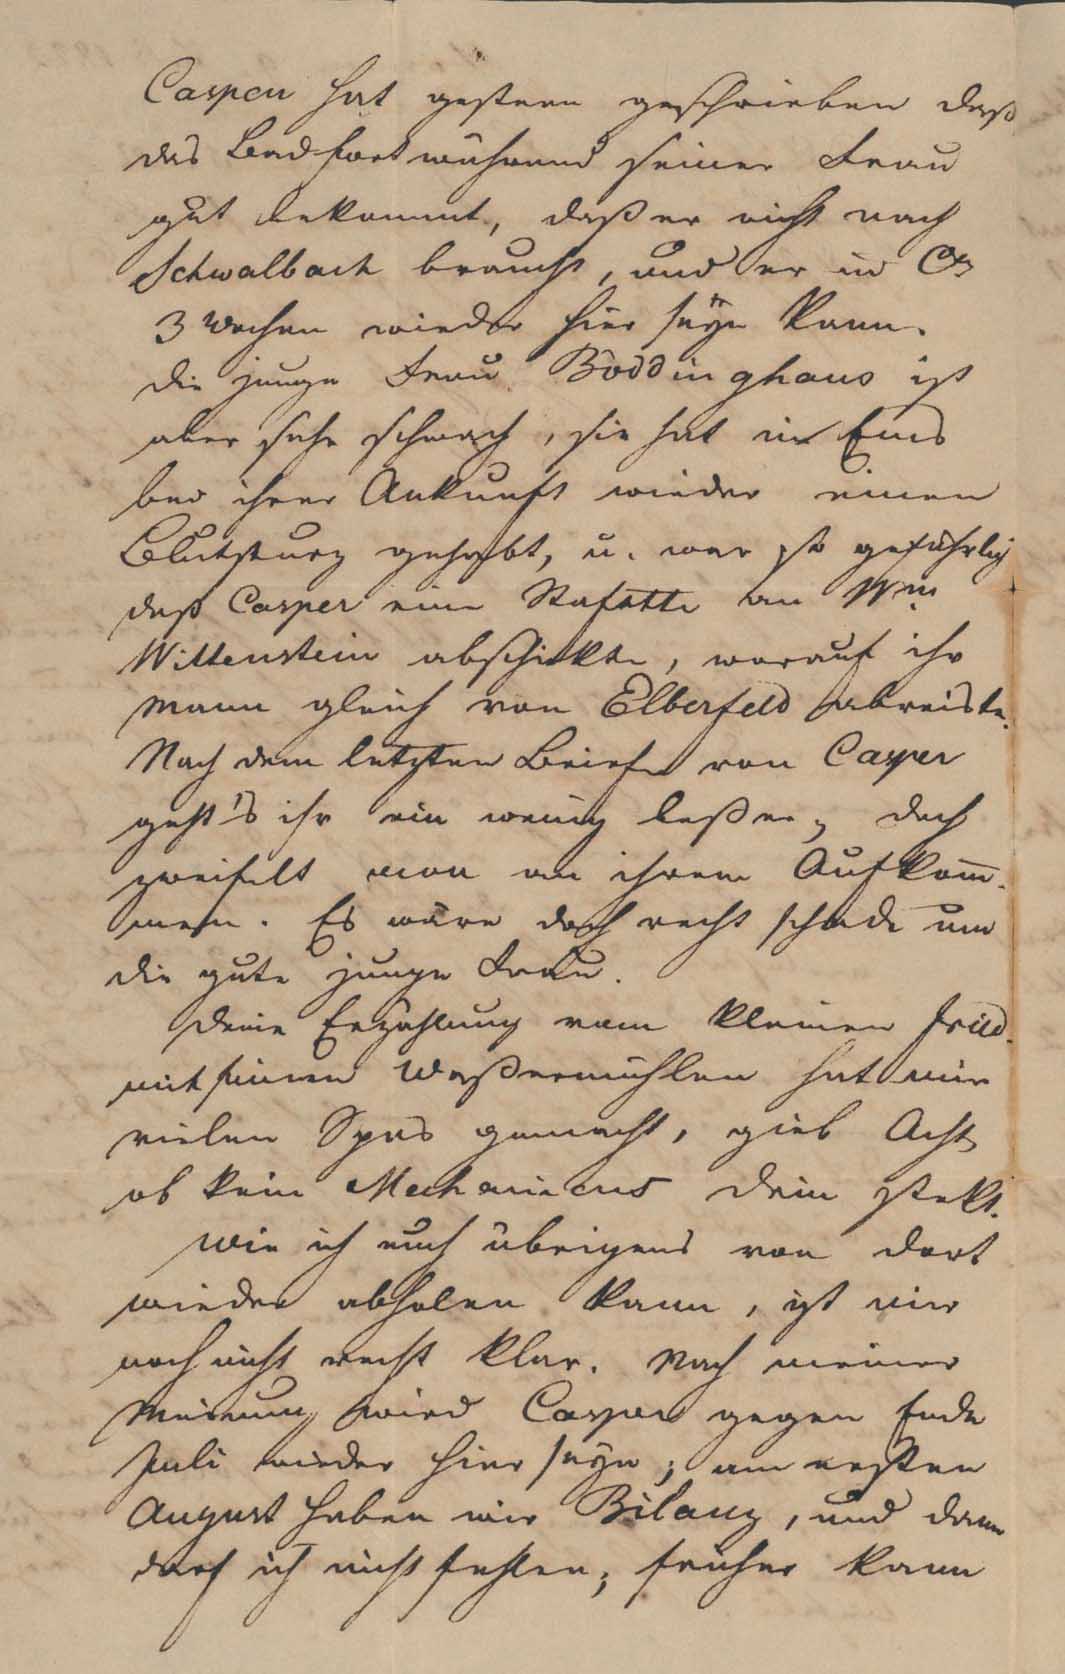 Casper hat gestern geschrieben daß
das Bad fortwährend seiner Frau
gut bekommt, daß er nicht nach
Schwalbach braucht, und er in Ca
3 Wochen wieder hier seÿn kann.
Die junge Frau Boddinghaus ist
aber sehr schwach, sie hat in Ems
bei ihrer Ankunft wieder einen
Blutsturz gehabt, u. war so gefährlich
daß Casper eine Stafette an Wm
Wittenstein abschickte, worauf ihr
Mann gleich von Elberfeld abreiste.
Nach dem letzten Briefe von Casper
geht's ihr ein wenig beßer, doch
zweifelt man an ihrem Aufkom̄-
men. Es wäre doch recht schade um
die gute junge Frau.
Deine Erzählung vom kleinen Fried.
mit seinen Waßermühlen hat mir
vielen Spas gemacht, gieb Acht
ob kein Mechanicus drin stekt.
Wie ich euch übrigens von dort
wieder abholen kann, ist mir
noch nicht recht klar. Nach meiner
Meinung wird Casper gegen Ende
Juli wieder hier seÿn; am ersten
August haben wir Bilanz, und dann
darf ich nicht fehlen; früher kann